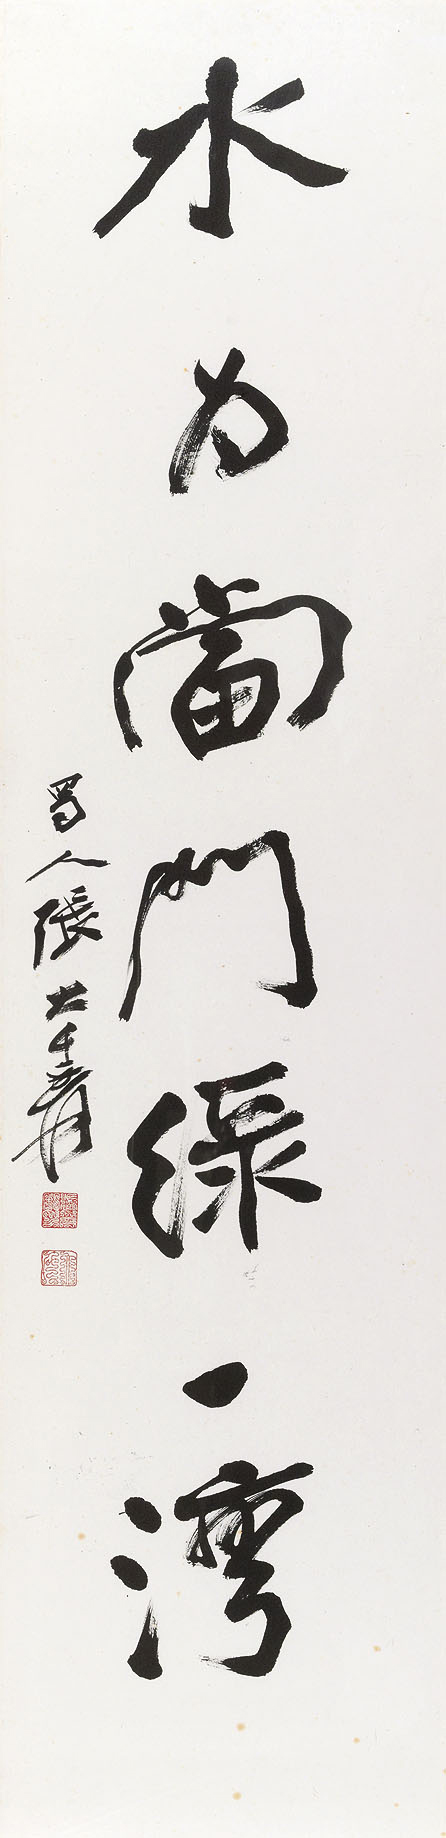 水为當門綠一灣
蜀人張大千爰